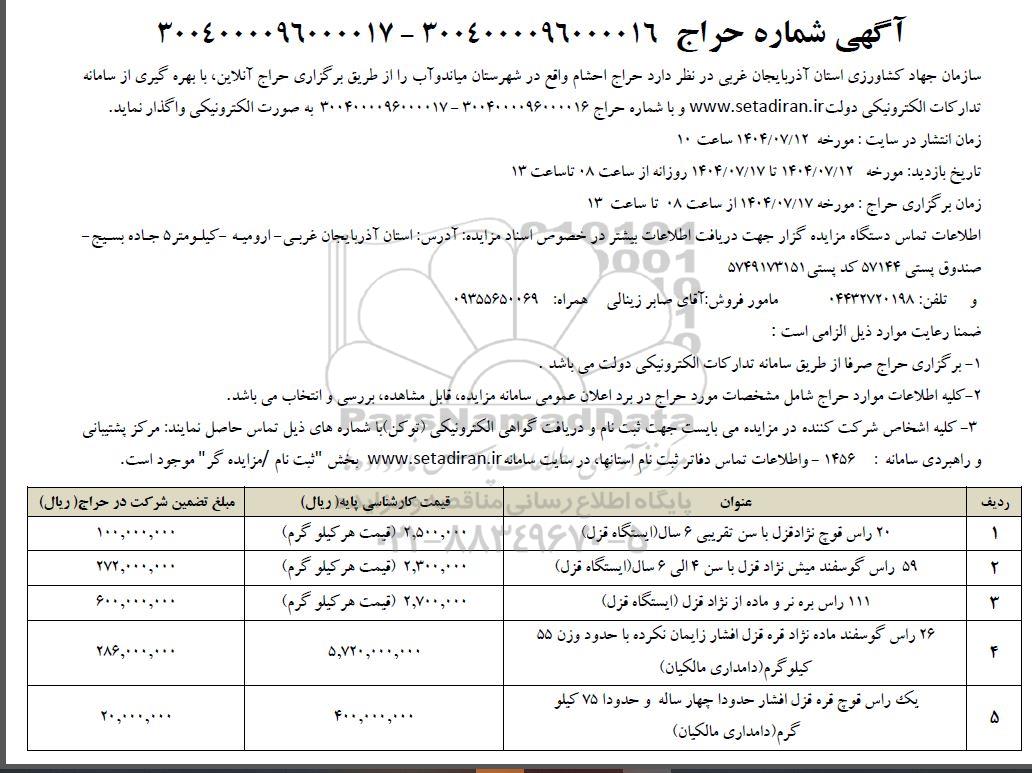 آگهی شماره حراج ۳۰۰۴۰۰۰۰۹۶۰۰۰۰۱۶ – ۳۰۰۴۰۰۰۰۹۶۰۰۰۰۱۷
سازمان جهاد کشاورزی استان آذربایجان غربی در نظر دارد حراج احشام واقع در شهرستان میاندوآب را از طریق برگزاری حراج آنلاین، با بهره گیری از سامانه
تدارکات الکترونیکی دولتwww.setadiran.ir و با شماره حراج ۳۰۰۴۰۰۰۰۹۶۰۰۰۰۱۶ – ۳۰۰۴۰۰۰۰۹۶۰۰۰۰۱۷ به صورت الکترونیکی واگذار نماید.
زمان انتشار در سایت : مورخه ۱۴۰۴/۰۷/۱۲ ساعت ۱۰
تاریخ بازدید: مورخه ۱۴۰۴/۰۷/۱۲ تا ۱۴۰۴/۰۷/۱۷ روزانه از ساعت ۰۸ تاساعت ۱۳
زمان برگزاری حراج : مورخه ۱۴۰۴/۰۷/۱۷ از ساعت ۰۸ تا ساعت ۱۳
اطلاعات تماس دستگاه مزایده گزار جهت دریافت اطلاعات بیشتر در خصوص اسناد مزایده: آدرس: استان آذربایجان غربی- ارومیه -کیلومتر۵ جاده بسیج-
صندوق پستی ۵۷۱۴۴ کد پستی۵۷۴۹۱۷۳۱۵۱
و تلفن: ۰۴۴۳۲۷۲۰۱۹۸ مامور فروش:آقای صابر زینالی همراه: ۰۹۳۵۵۶۵۰۰۶۹
ضمنا رعایت موارد ذیل الزامی است :
۱- برگزاری حراج صرفا از طریق سامانه تدارکات الکترونیکی دولت می باشد .
۲-کلیه اطلاعات موارد حراج شامل مشخصات مورد حراج در برد اعلان عمومی سامانه مزایده، قابل مشاهده، بررسی و انتخاب می باشد.
۳- کلیه اشخاص شرکت کننده در مزایده می بایست جهت ثبت نام و دریافت گواهی الکترونیکی (توکن)با شماره های ذیل تماس حاصل نمایند: مرکز پشتیبانی
و راهبردی سامانه : ۱۴۵۶ – واطلاعات تماس دفاتر ثبت نام استانها، در سایت سامانه www.setadiran.ir بخش "ثبت نام /مزایده گر" موجود است.
ParsNamadData
پایگاه اطلاع رسانی مناقصه و مزایده
۰۲۱-۸۸۳۴۹۶۷۰-۵
ردیف عنوان قیمت کارشناسی پایه( ریال) مبلغ تضمین شرکت در حراج( ریال)
۱ ۲۰ راس قوچ نژادقزل با سن تقریبی ۶ سال(ایستگاه قزل) ۲,۵۰۰,۰۰۰ (قیمت هرکیلو گرم) ۱۰۰,۰۰۰,۰۰۰
۲ ۵۹ راس گوسفند میش نژاد قزل با سن ۴ الی ۶ سال(ایستگاه قزل) ۲,۳۰۰,۰۰۰ (قیمت هرکیلو گرم) ۲۷۲,۰۰۰,۰۰۰
۳ ۱۱۱ راس بره نر و ماده از نژاد قزل (ایستگاه قزل) ۲,۷۰۰,۰۰۰ (قیمت هرکیلو گرم) ۶۰۰,۰۰۰,۰۰۰
۴ ۲۶ راس گوسفند ماده نژاد قره قزل افشار زایمان نکرده با حدود وزن ۵۵
کیلوگرم(دامداری مالکیان) ۵,۷۲۰,۰۰۰,۰۰۰ ۲۸۶,۰۰۰,۰۰۰
۵ یک راس قوچ قره قزل افشار حدودا چهار ساله و حدودا ۷۵ کیلو
گرم(دامداری مالکیان) ۴۰۰,۰۰۰,۰۰۰ ۲۰,۰۰۰,۰۰۰